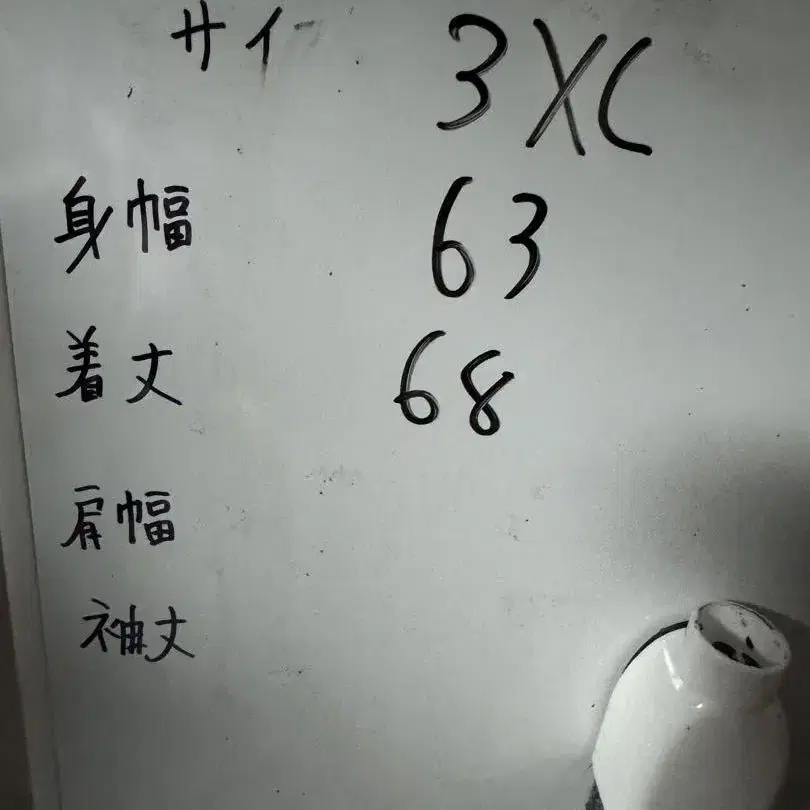 サイ 3XL
身幅 63
着丈 68
肩幅
袖丈